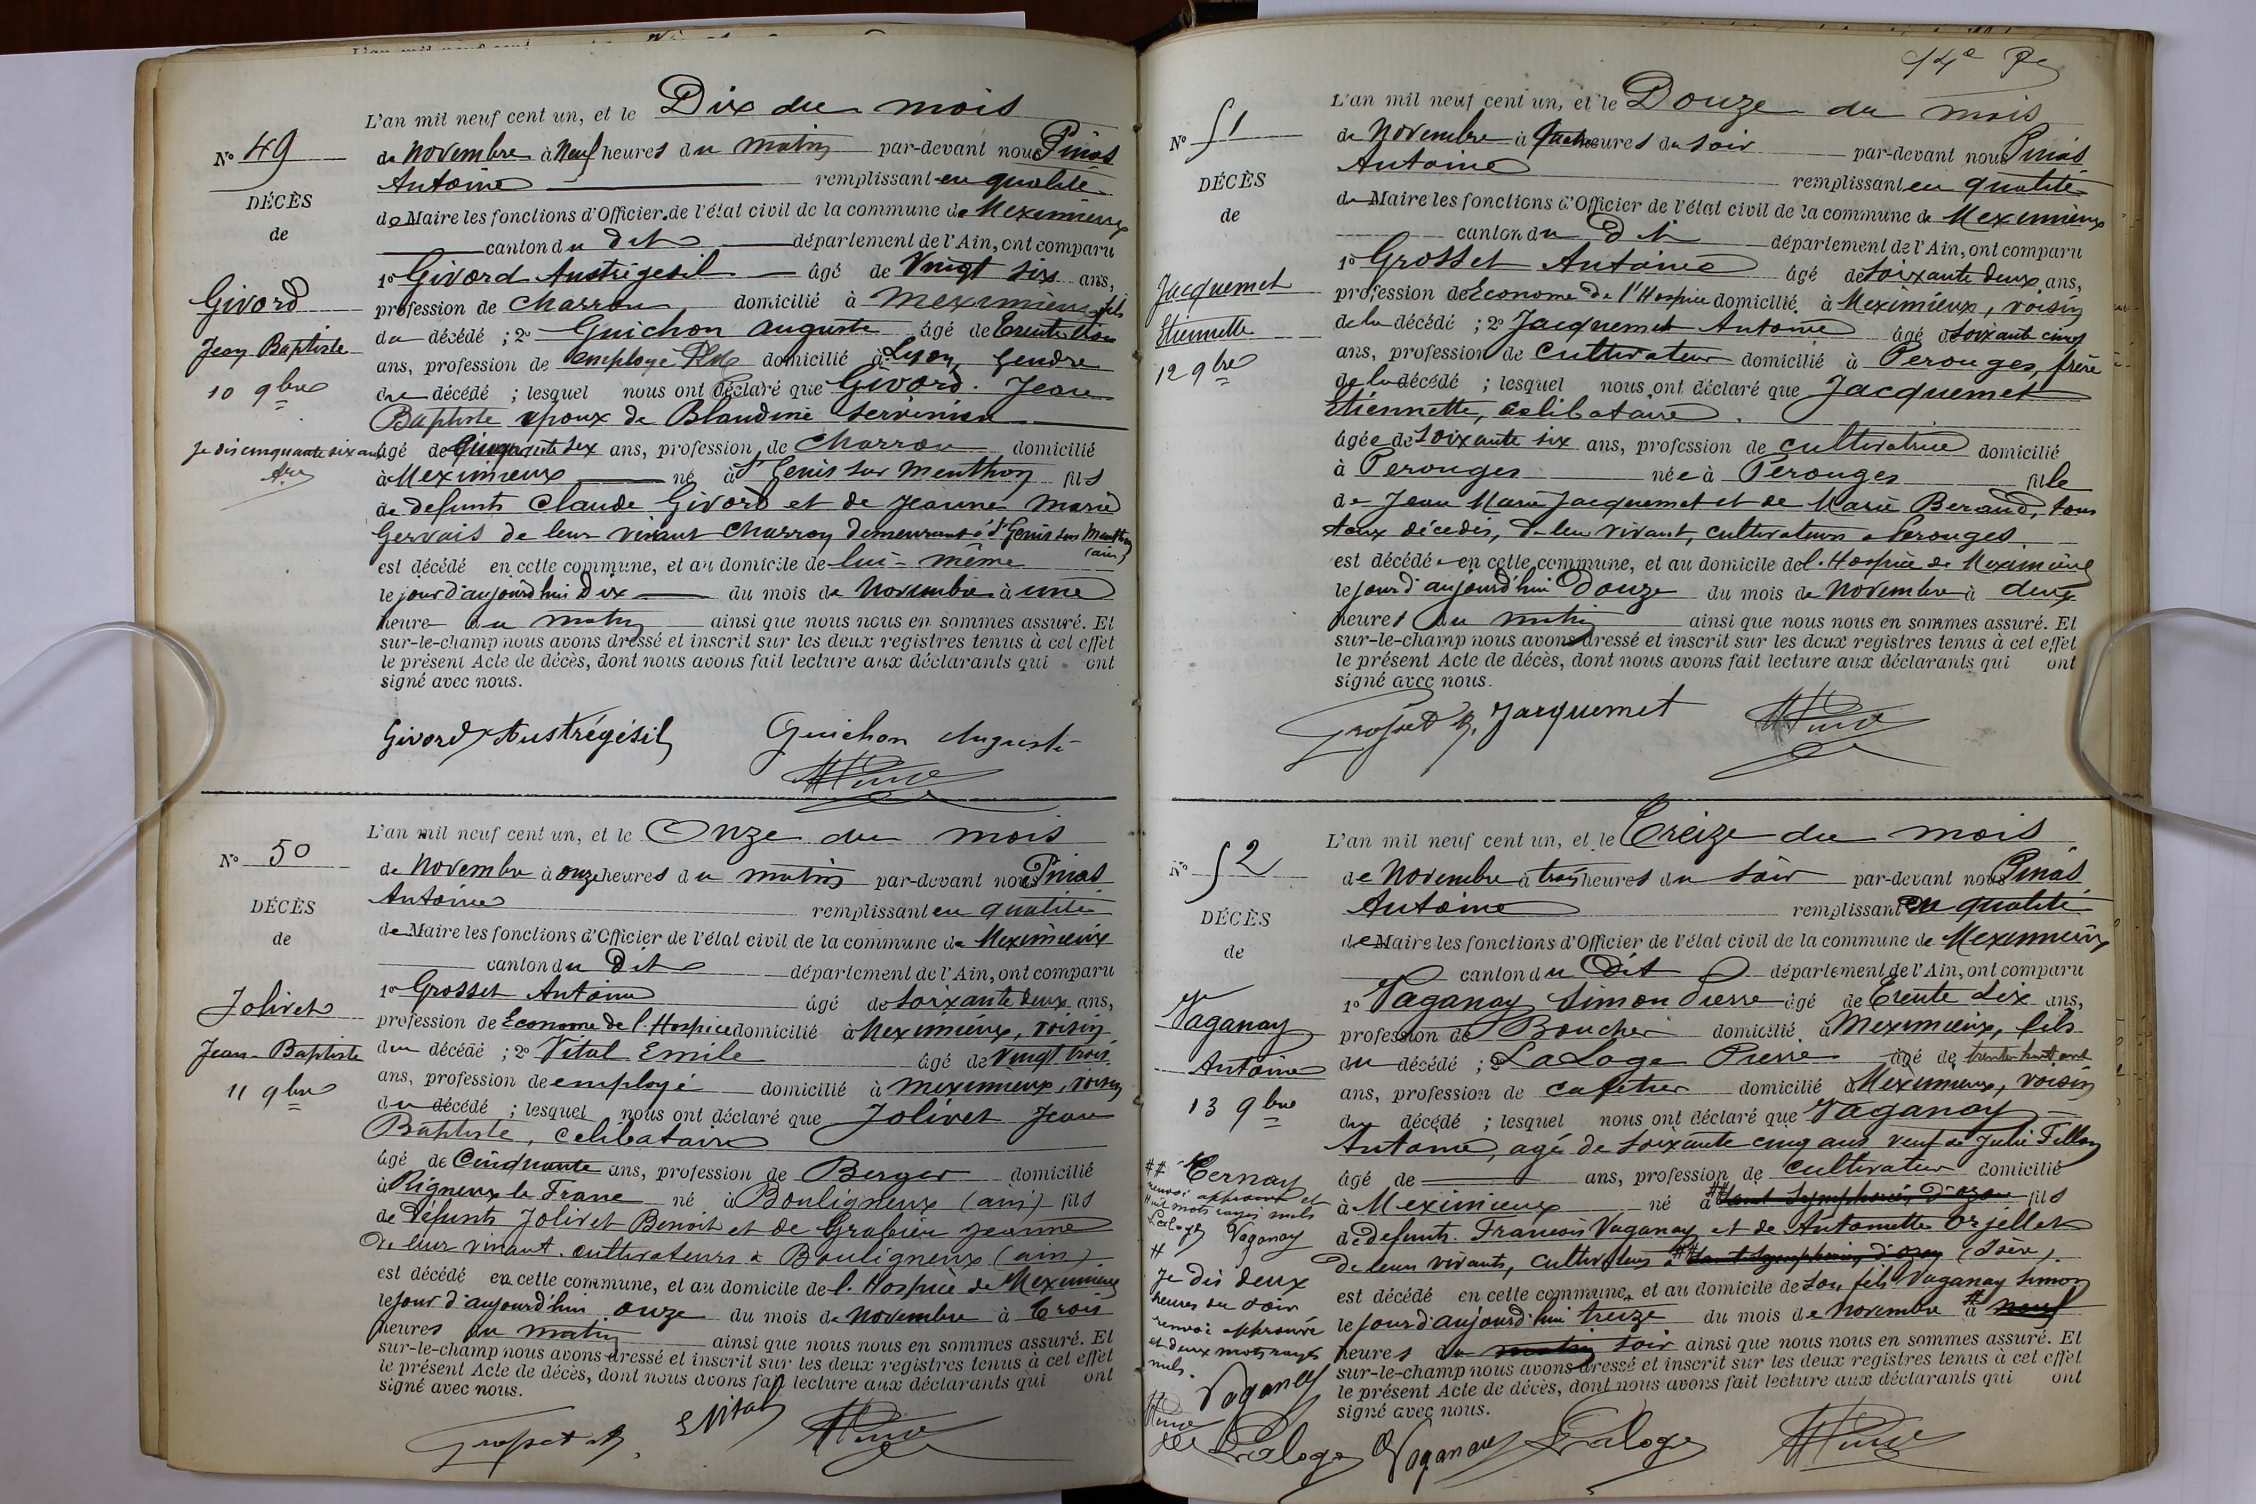 L'an mil neuf cent un, et le Dix du mois
No 49
de Novembre à Neuf heures du matin par-devant nous Pinas
Antoine remplissant en qualité
DÉCÈS
de Maire les fonctions d'Officier de l'état civil de la commune de Meximieux
de
canton du dit département de l'Ain, ont comparu
1o Givord Austrégésil âgé de Vingt six ans,
Givord
profession de Charron domicilié à Meximieux, fils
du décédé ; 2o Guichon Auguste âgé de Trente trois
Jean Baptiste
ans, profession de employé domicilié à Lyon, gendre
10 9bre
du décédé ; lesquel nous ont déclaré que Givord Jean
Baptiste époux de Blandine
Je dis cinquante six ans
âgé de Cinquante six ans, profession de Charron domicilié
à Meximieux né à St Genis sur Menthon fils
de defunts Claude Givord et de Jeanne Marie
Gervais de leur vivant Charron demeurant à St Genis sur Menthon
(ain)
est décédé en cette commune, et au domicile de lui-même
le jour d'aujourd'hui Dix du mois de Novembre à une
heure du matin ainsi que nous nous en sommes assuré. Et
sur-le-champ nous avons dressé et inscrit sur les deux registres tenus à cet effet
le présent Acte de décès, dont nous avons fait lecture aux déclarants qui ont
signé avec nous.
Givord Austrégésil Guichon Auguste
L'an mil neuf cent un, et le Onze du mois
No 50
de Novembre à onze heures du matin par-devant nous Pinas
Antoine remplissant en qualité
DÉCÈS
de Maire les fonctions d'Officier de l'état civil de la commune de Meximieux
de
canton du dit département de l'Ain, ont comparu
1o Grosset Antoine âgé de soixante deux ans,
Jolivet
profession de Econome de l'Hospice domicilié à Meximieux, voisin
du décédé ; 2o Vital Emile âgé de Vingt trois
Jean-Baptiste
ans, profession de employé domicilié à Meximieux, voisin
11 9bre
du décédé ; lesquel nous ont déclaré que Jolivet Jean
Baptiste, celibataire
âgé de Cinquante ans, profession de Berger domicilié
à Rigneux le Franc né à Bouligneux (ain) fils
de Défunts Jolivet Benoit et de Jeanne
De leur vivant cultivateurs à Bouligneux (ain)
est décédé en cette commune, et au domicile de l'Hospice de Meximieux
le jour d'aujourd'hui onze du mois de Novembre à trois
heures du matin ainsi que nous nous en sommes assuré. Et
sur-le-champ nous avons dressé et inscrit sur les deux registres tenus à cet effet
le présent Acte de décès, dont nous avons fait lecture aux déclarants qui ont
signé avec nous.
Grosset A. E Vital
14e
L'an mil neuf cent un, et le Douze du mois
No 51
de Novembre à heures du soir par-devant nous Pinas
Antoine remplissant en qualité
DÉCÈS
de Maire les fonctions d'Officier de l'état civil de la commune de Meximieux
de
canton du Dit département de l'Ain, ont comparu
1o Grosset Antoine âgé de soixante deux ans,
Jacquemet
profession de Econome de l'Hospice domicilié à Meximieux, voisin
Etiennette
de la décédé ; 2o Jacquemet Antoine âgé de soixante cinq
12 9bre
ans, profession de cultivateur domicilié à Perouges, frère
de la décédé ; lesquel nous ont déclaré que Jacquemet
Etiennette, celibataire
âgée de soixante six ans, profession de cultivatrice domicilié
à Perouges née à Perouges fille
de Jean Marie Jacquemet et de Marie Beraud, tous
deux décédés, de leur vivant, cultivateurs à Perouges
est décédée en cette commune, et au domicile de l'Hospice de Meximieux
le jour d'aujourd'hui Douze du mois de Novembre à deux
heures du matin ainsi que nous nous en sommes assuré. Et
sur-le-champ nous avons dressé et inscrit sur les deux registres tenus à cet effet
le présent Acte de décès, dont nous avons fait lecture aux déclarants qui ont
signé avec nous.
Grosset A. Jacquemet
L'an mil neuf cent un, et le Treize du mois
No 52
de Novembre à trois heures du soir par-devant nous Pinas
Antoine remplissant en qualité
DÉCÈS
de Maire les fonctions d'Officier de l'état civil de la commune de Meximieux
de
canton du Dit département de l'Ain, ont comparu
1o Vaganay Simon Pierre âgé de Trente six ans,
Vaganay
profession de Boucher domicilié à Meximieux, fils
Antoine
du décédé ; 2o LaLoge Pierre âgé de trente huit ans
ans, profession de cafetier domicilié à Meximieux, voisin
13 9bre
du décédé ; lesquel nous ont déclaré que Vaganay
Antoine, agé de soixante cinq ans veuf de Julie Fillon
âgé de ans, profession de cultivateur domicilié
à Meximieux né à ## Saint Symphorien d'ozon fils
de defunts Francois Vaganay et de Antoinette Orjollet
De leurs vivants, cultivateurs à ## Saint Symphorien d'ozon (Isère).
est décédé en cette commune, et au domicile de son fils Vaganay Simon
le jour d'aujourd'hui treize du mois de novembre # à neuf
heures du matin soir ainsi que nous nous en sommes assuré. Et
sur-le-champ nous avons dressé et inscrit sur les deux registres tenus à cet effet
le présent Acte de décès, dont nous avons fait lecture aux déclarants qui ont
signé avec nous.
## Ternay
renvoi approuvé et
huit mots rayés nuls
Laloge Vaganay
#
Je dis deux
heures du soir
renvoi approuvé
et deux mots rayés
nuls.
Vaganay
Laloge Vaganay Laloge